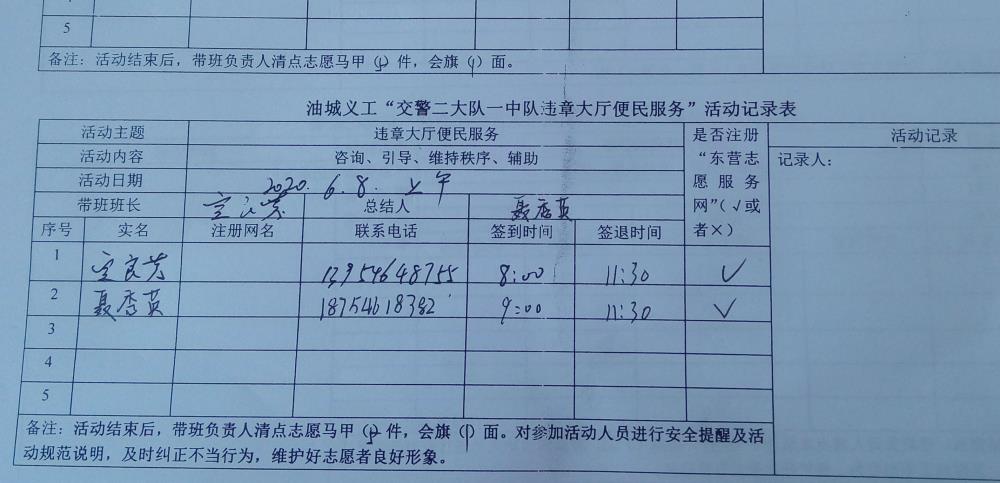 5
备注：活动结束后，带班负责人清点志愿马甲（5）件，会旗（1）面。
油城义工“交警二大队一中队违章大厅便民服务”活动记录表
活动主题 违章大厅便民服务 是否注册“东营志愿服务网”（√或者×） 活动记录
活动内容 咨询、引导、维持秩序、辅助 记录人：
活动日期 2020.6.8.上午
带班班长 总结人 聂秀英
序号 实名 注册网名 联系电话 签到时间 签退时间
1 13954648755 8:00 11:30 √
2 聂秀英 18754618382 9:00 11:30 √
3
4
5
备注：活动结束后，带班负责人清点志愿马甲（5）件，会旗（1）面。对参加活动人员进行安全提醒及活
动规范说明，及时纠正不当行为，维护好志愿者良好形象。